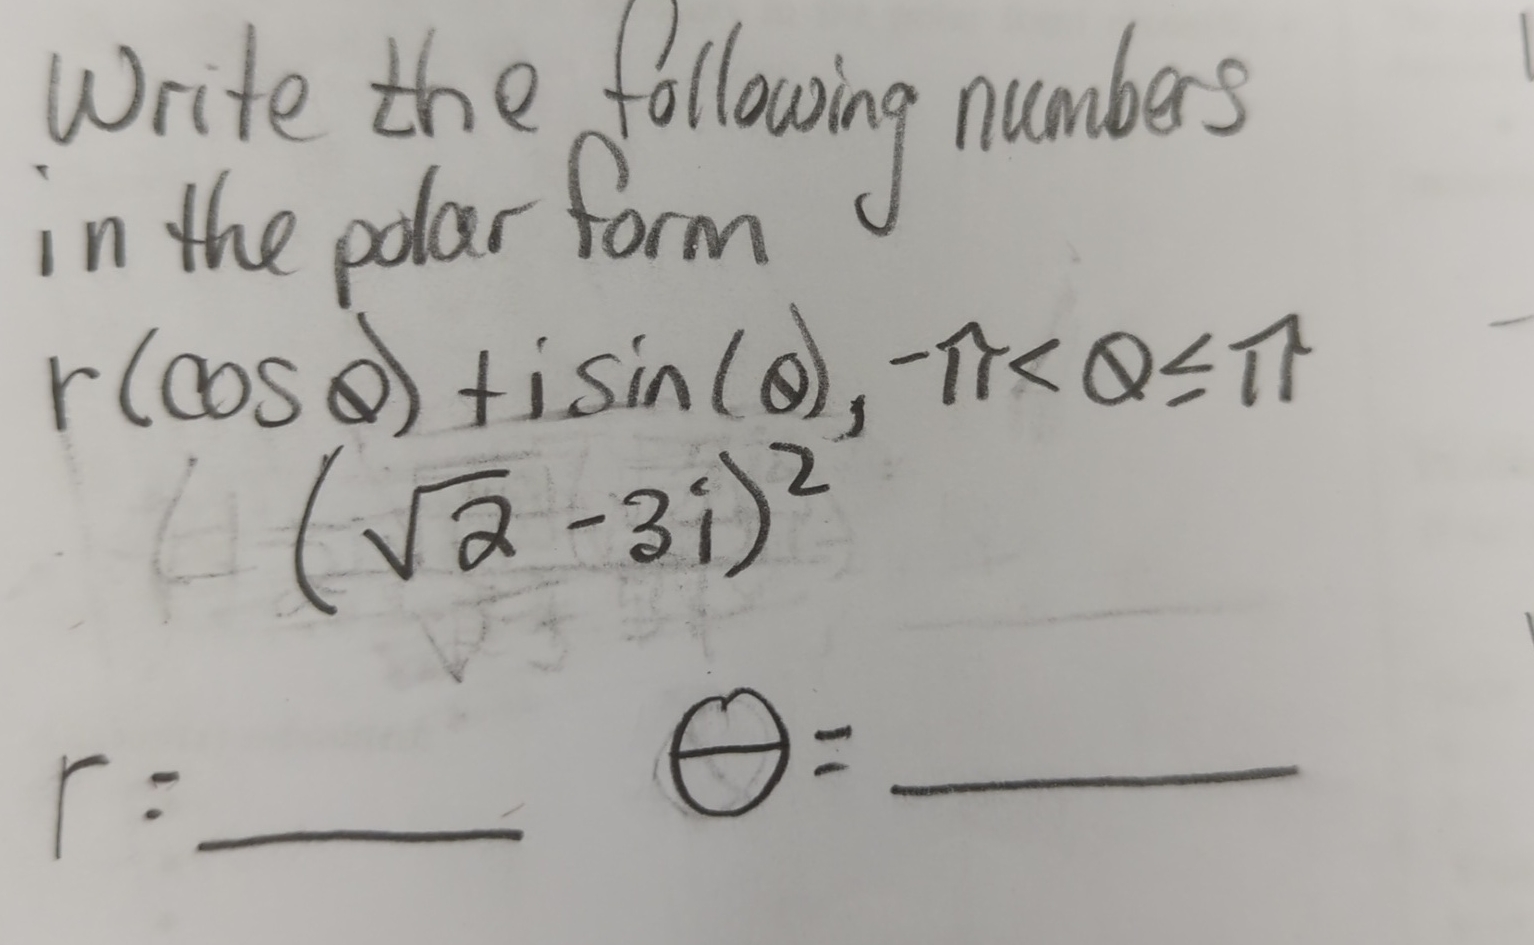 Write the following numbers
in the polar form
r(cos θ) + i sin(θ), -π < θ ≤ π
(√2 - 3i)²
r = ____ θ = ____